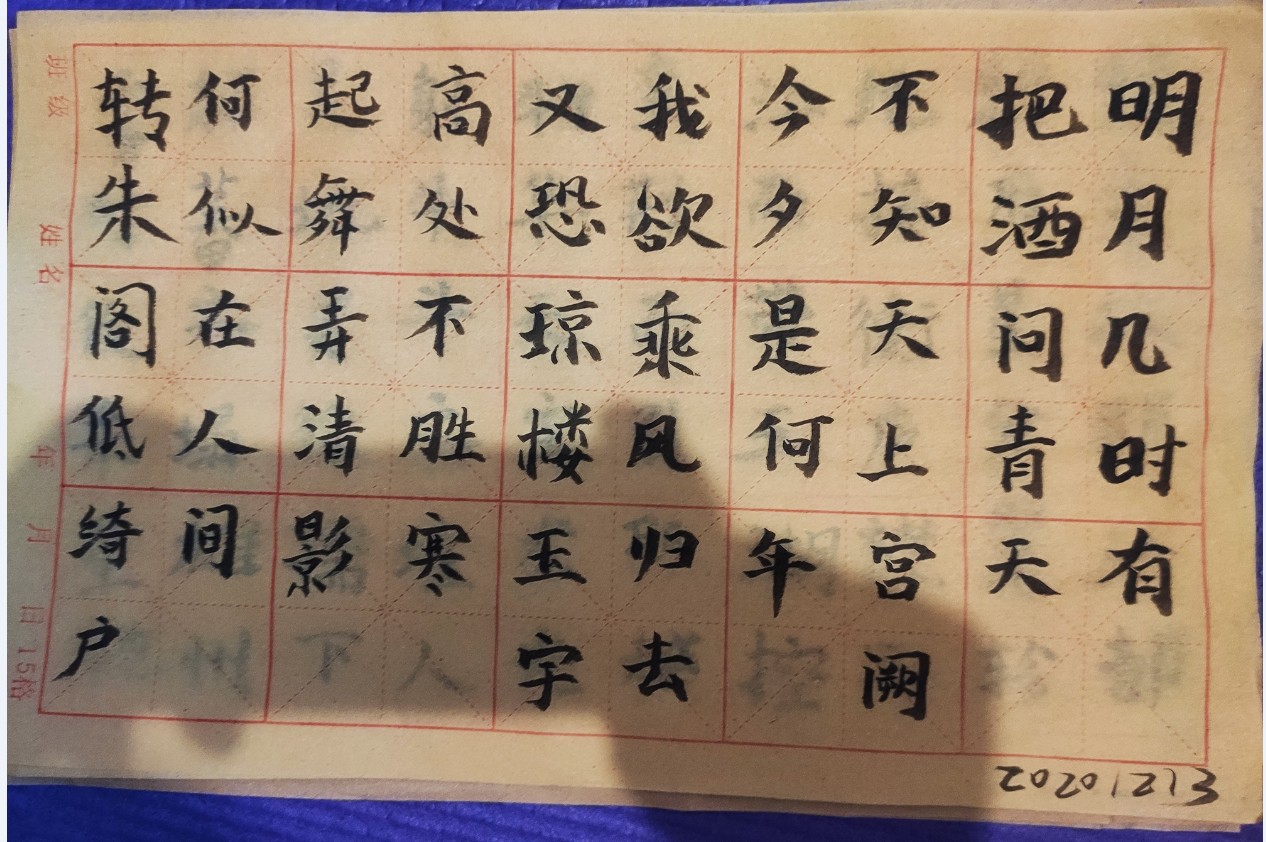 明月几时有
把酒问青天
不知天上宫阙
今夕是何年
我欲乘风归去
又恐琼楼玉宇
高处不胜寒
起舞弄清影
何似在人间
转朱阁低绮户
班级 姓名 年 月 日 15格
20201213